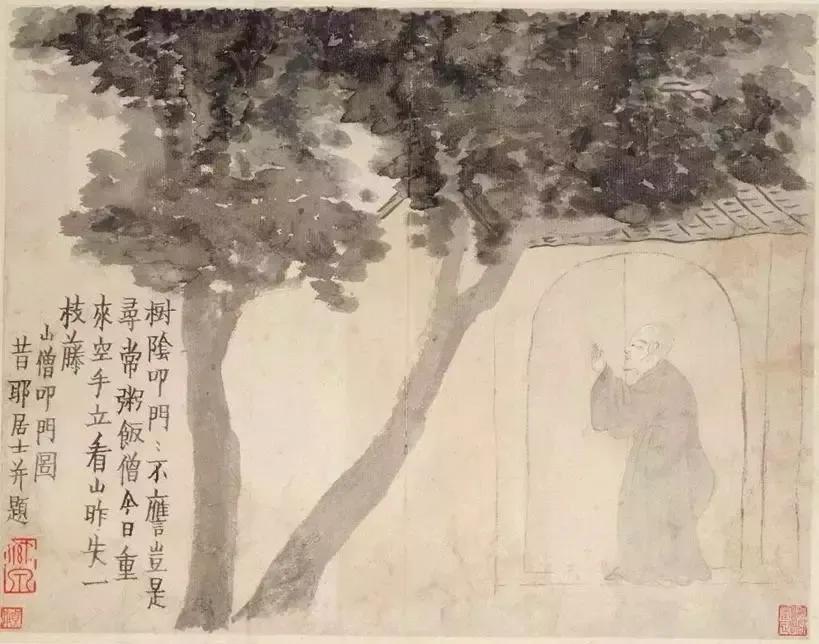 樹陰叩門〻不應豈是
尋常粥飯僧今日重
來空手立看山昨失一
枝藤
山僧叩門圖
昔耶居士并題